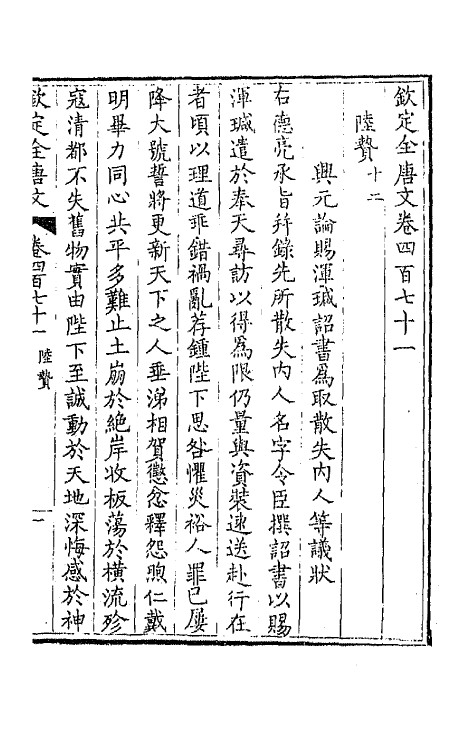 欽定全唐文卷四百七十一
陸贄十二
興元論賜渾瑊詔書為取散失內人等議狀
右德亮承旨幷錄先所散失內人名字令臣撰詔書以賜
渾瑊遣於奉天尋訪以得為限仍量與資裝速送赴行在
者頃以理道乖錯禍亂荐鍾陛下思咎懼災裕人罪己屢
降大號誓將更新天下之人垂涕相賀懲忿釋怨煦仁戴
明畢力同心共平多難止土崩於絕岸收板蕩於橫流殄
寇清都不失舊物實由陛下至誠動於天地深悔感於神
欽定全唐文
卷四百七十一 陸贄
一